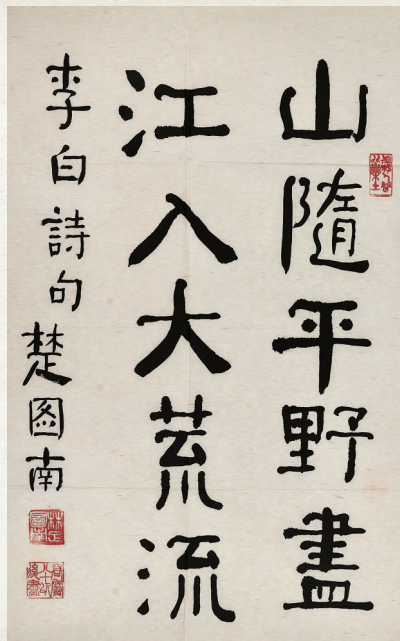 山隨平野盡
江入大荒流
李白詩句楚图南